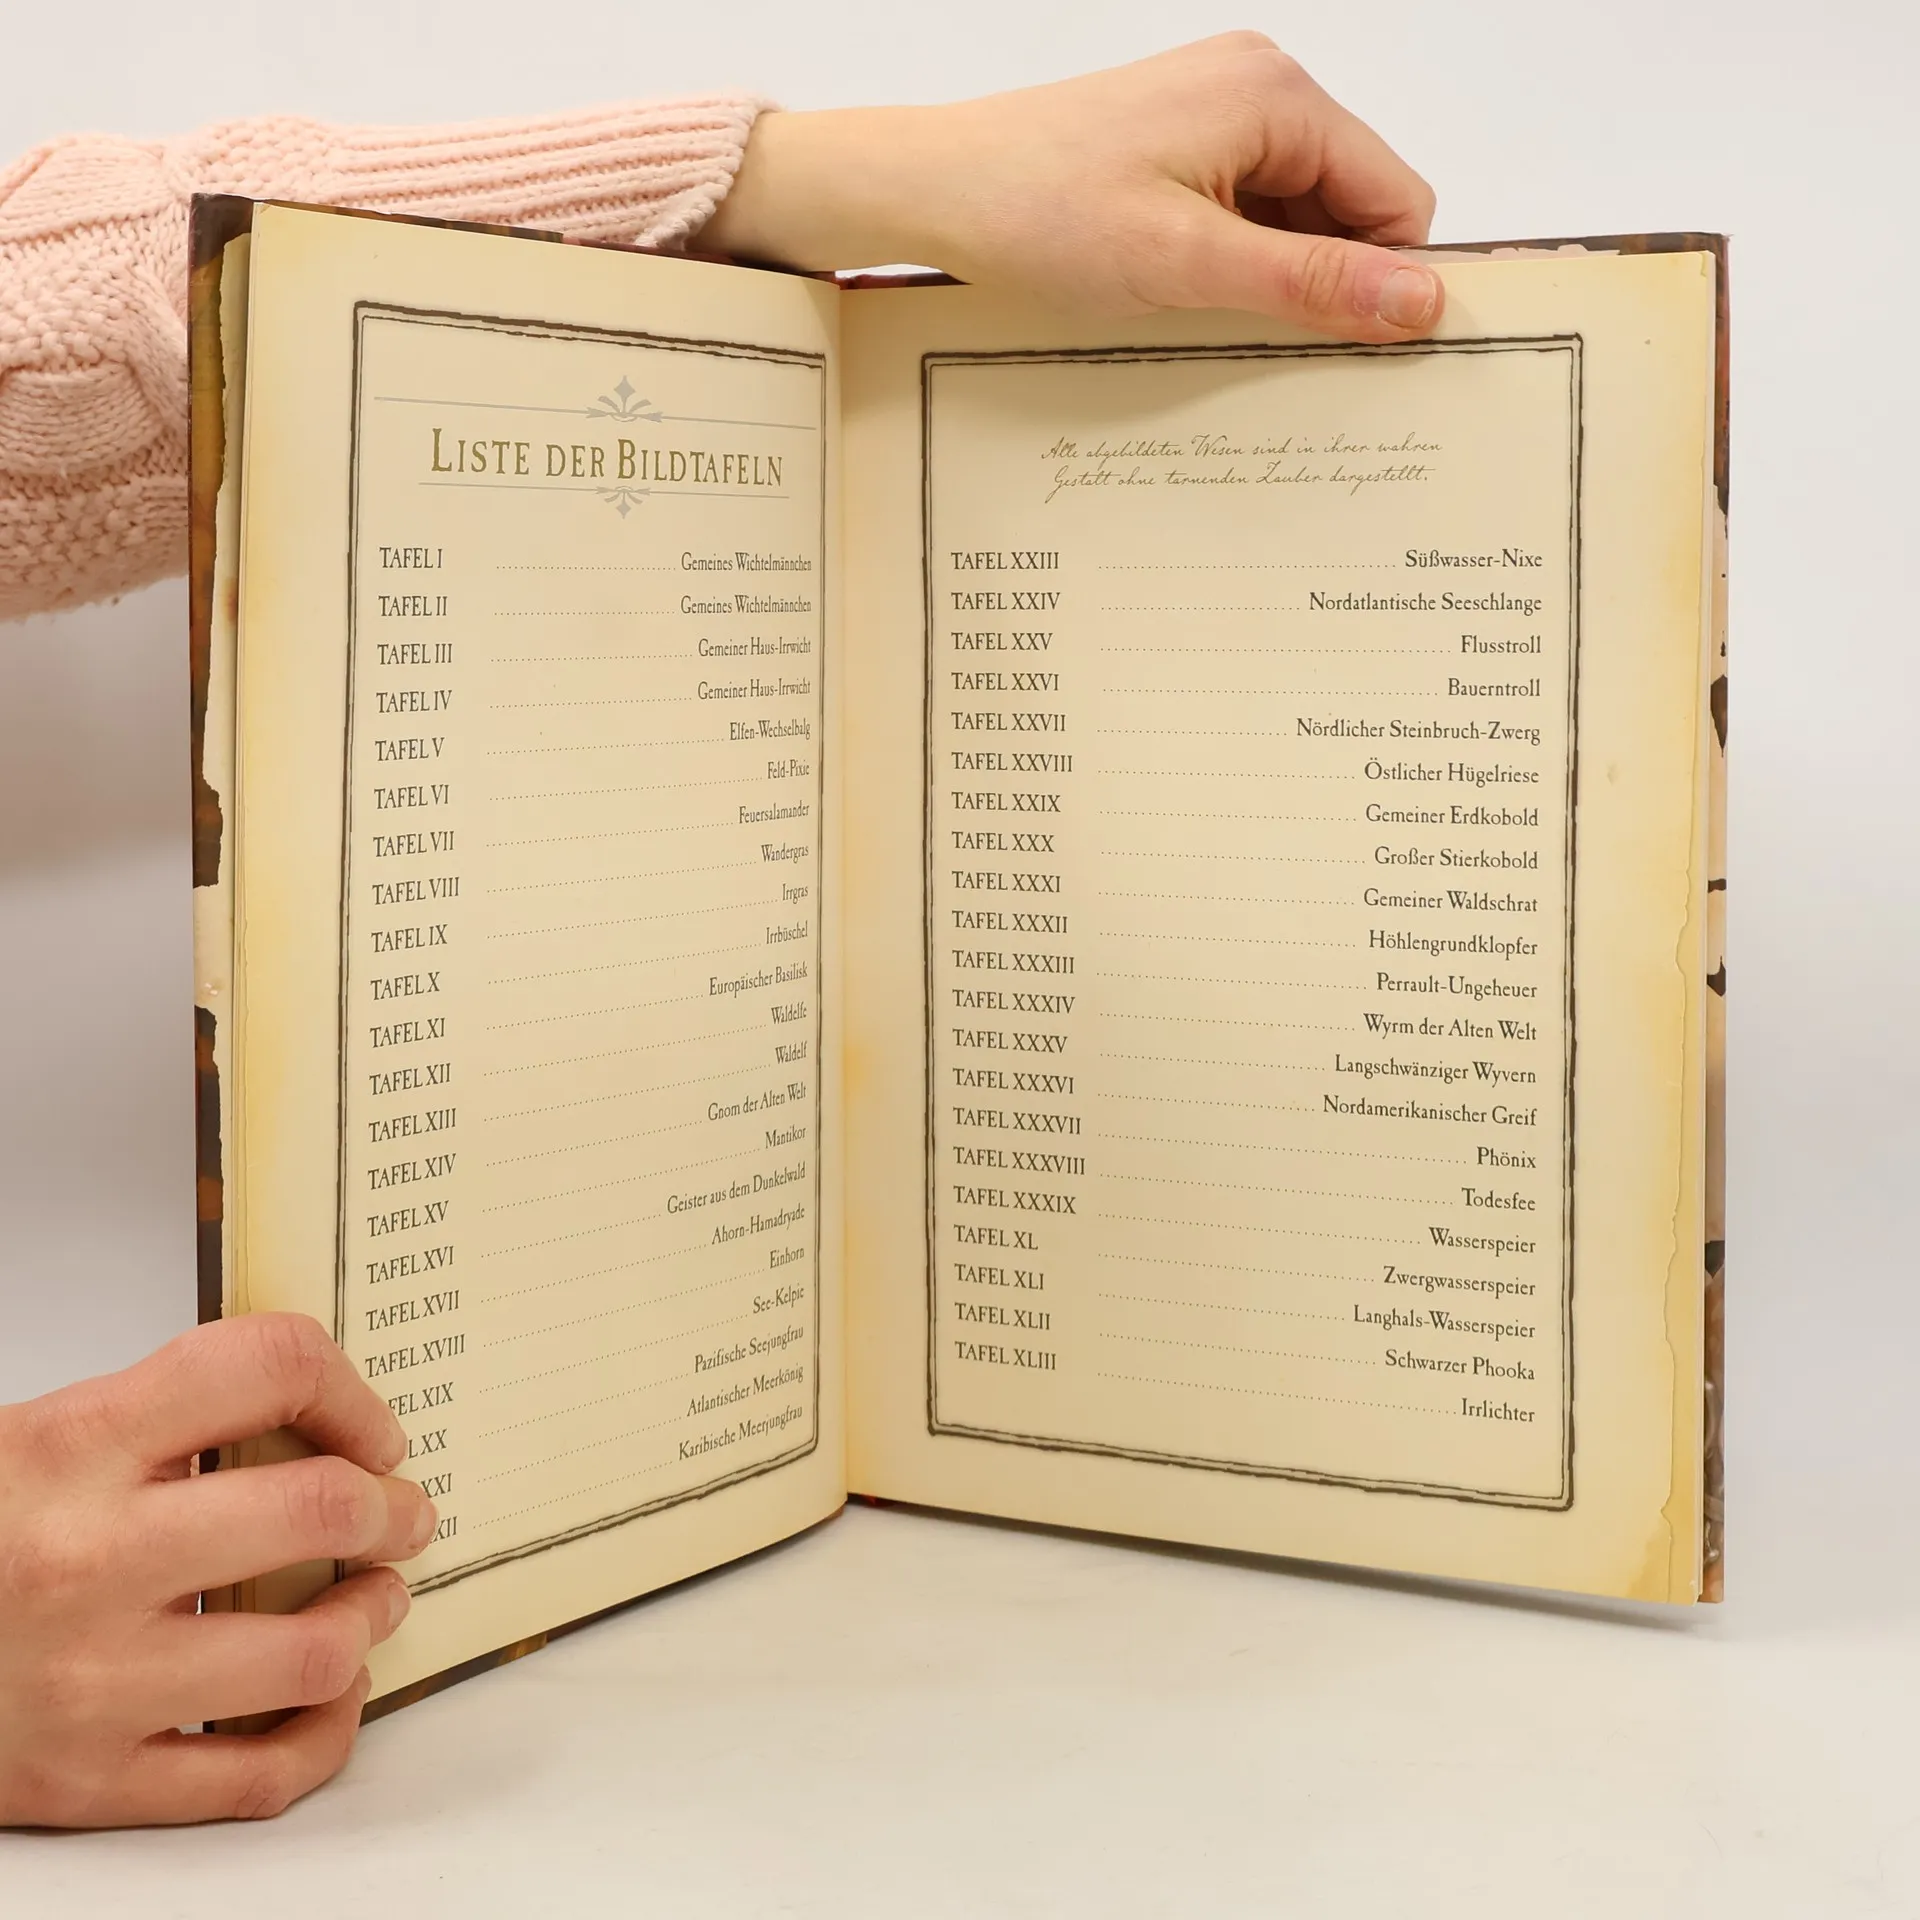 LISTE DER BILDTAFELN
TAFEL I ........ Gemeines Wichtelmännchen
TAFEL II ........ Gemeines Wichtelmännchen
TAFEL III ........ Gemeiner Haus-Irrwicht
TAFEL IV ........ Gemeiner Haus-Irrwicht
TAFEL V ........ Elfen-Wechselbalg
TAFEL VI ........ Feld-Pixie
TAFEL VII ........ Feuersalamander
TAFEL VIII ........ Wandergras
TAFEL IX ........ Irrgras
TAFEL X ........ Irrbüschel
TAFEL XI ........ Europäischer Basilisk
TAFEL XII ........ Waldelfe
TAFEL XIII ........ Waldelf
TAFEL XIV ........ Gnom der Alten Welt
TAFEL XV ........ Mantikor
TAFEL XVI ........ Geister aus dem Dunkelwald
TAFEL XVII ........ Ahorn-Hamadryade
TAFEL XVIII ........ Einhorn
FEL XIX ........ See-Kelpie
L XX ........ Pazifische Seejungfrau
XXI ........ Atlantischer Meerkönig
XII ........ Karibische Meerjungfrau
Alle abgebildeten Wesen sind in ihrer wahren
Gestalt ohne tarnenden Zauber dargestellt.
TAFEL XXIII ........ Süßwasser-Nixe
TAFEL XXIV ........ Nordatlantische Seeschlange
TAFEL XXV ........ Flusstroll
TAFEL XXVI ........ Bauerntroll
TAFEL XXVII ........ Nördlicher Steinbruch-Zwerg
TAFEL XXVIII ........ Östlicher Hügelriese
TAFEL XXIX ........ Gemeiner Erdkobold
TAFEL XXX ........ Großer Stierkobold
TAFEL XXXI ........ Gemeiner Waldschrat
TAFEL XXXII ........ Höhlengrundklopfer
TAFEL XXXIII ........ Perrault-Ungeheuer
TAFEL XXXIV ........ Wyrm der Alten Welt
TAFEL XXXV ........ Langschwänziger Wyvern
TAFEL XXXVI ........ Nordamerikanischer Greif
TAFEL XXXVII ........ Phönix
TAFEL XXXVIII ........ Todesfee
TAFEL XXXIX ........ Wasserspeier
TAFEL XL ........ Zwergwasserspeier
TAFEL XLI ........ Langhals-Wasserspeier
TAFEL XLII ........ Schwarzer Phooka
TAFEL XLIII ........ Irrlichter